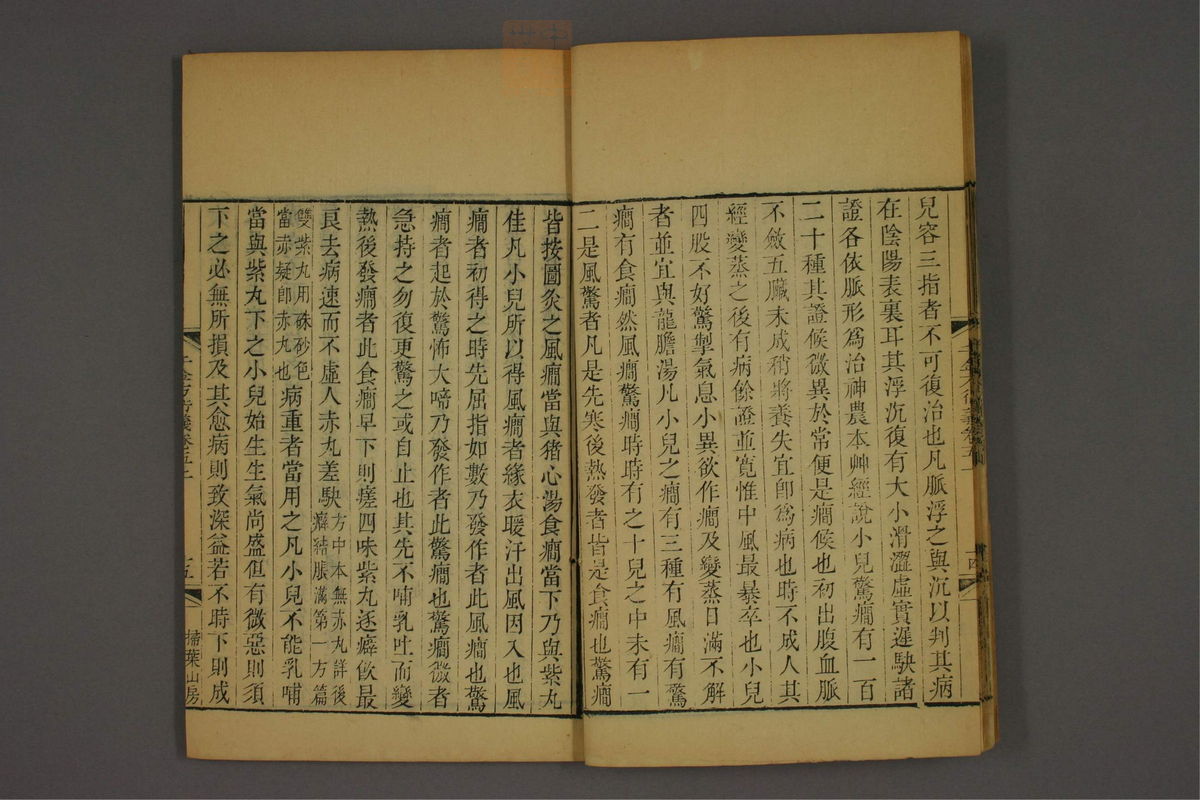 兒容三指者不可復治也凡脈浮之與沉以判其病
在陰陽表裏耳其浮沉復有大小滑澀虛實遲駃諸
證各依脈形爲治神農本艸經說小兒驚癇有一百
二十種其證候微異於常便是癇候也初出腹血脈
不斂五臟未成稍將養失宜卽爲病也時不成人其
經變蒸之後有病餘證並寬惟中風最暴卒也小兒
四股不好驚掣氣息小異欲作癇及變蒸日滿不解
者並宜與龍膽湯凡小兒之癇有三種有風癇有驚
癇有食癇然風癇驚癇時時有之十兒之中未有一
二是風驚者凡是先寒後熱發者皆是食癇也驚癇
皆按圖灸之風癇當與猪心湯食癇當下乃與紫丸
佳凡小兒所以得風癇者緣衣暖汗出風因入也風
癇者初得之時先屈指如數乃發作者此風癇也驚
癇者起於驚怖大啼乃發作者此驚癇也驚癇微者
急持之勿復更驚之或自止也其先不哺乳吐而變
熱後發癇者此食癇早下則瘥四味紫丸逐癖飲最
良去病速而不虛人赤丸差駃方中本無赤丸詳後
癖結脹滿第一方篇
雙紫丸用硃砂色
當赤疑卽赤丸也病重者當用之凡小兒不能乳哺
當與紫丸下之小兒始生生氣尚盛但有微惡則須
下之必無所損及其愈病則致深益若不時下則成
千金方衍義卷五上
五
掃葉山房